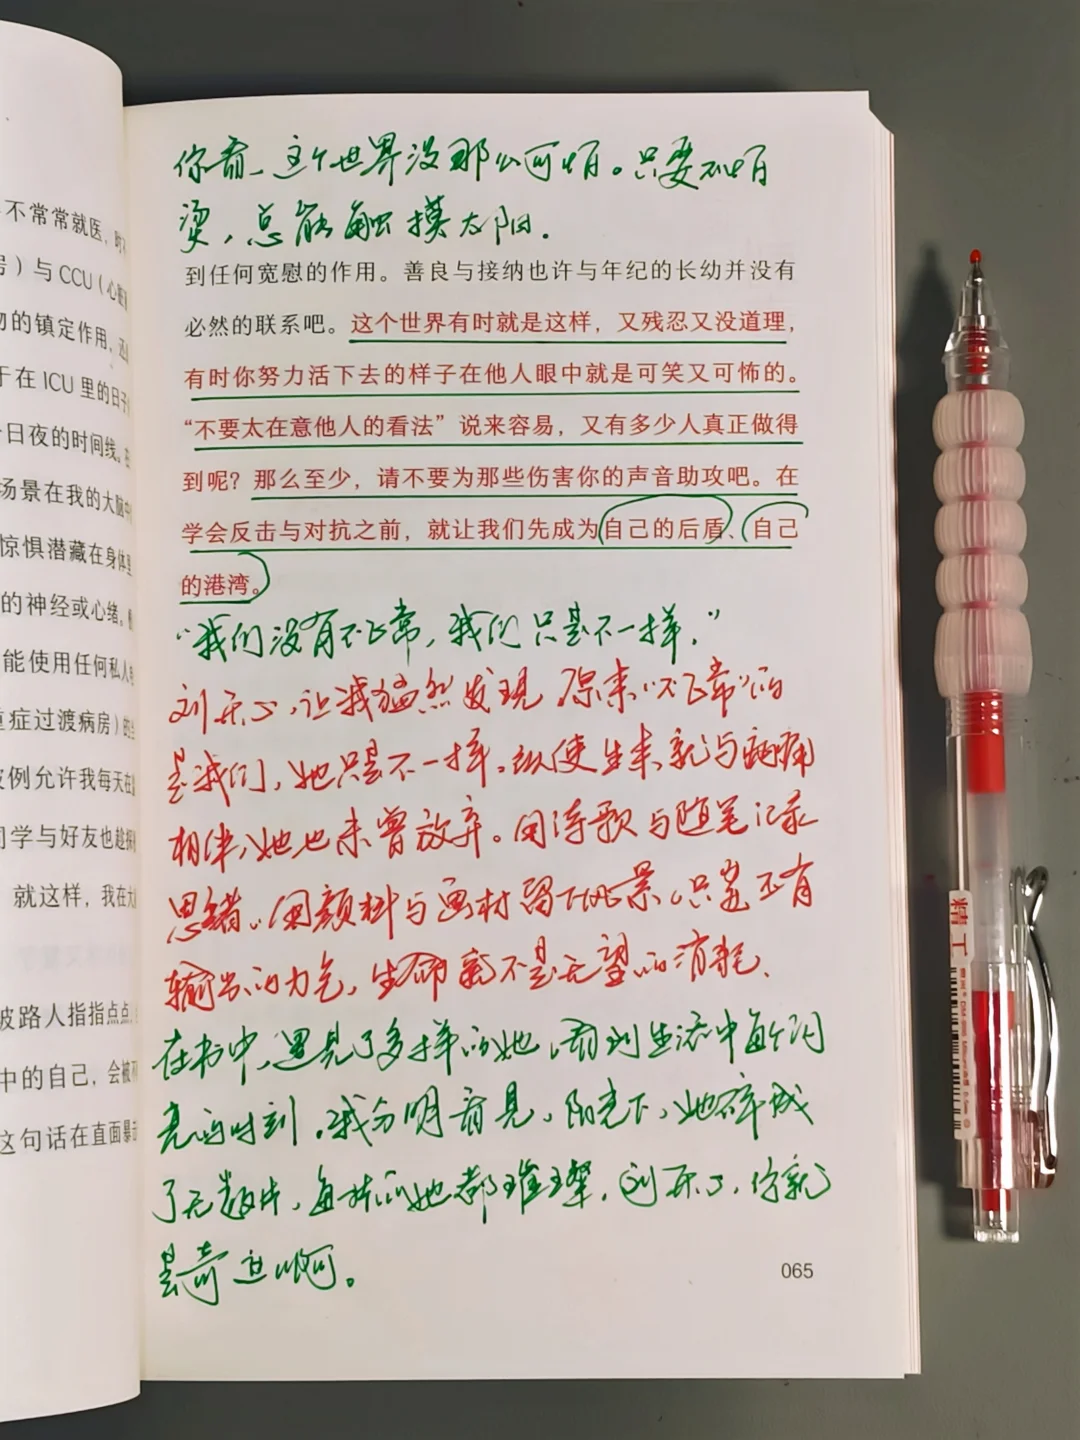 不常常就医，时
号）与 CCU（心脏
物的镇定作用，还
于在 ICU 里的日子
日夜的时间线。
场景在我的大脑中
惊惧潜藏在身体里
的神经或心绪。
能使用任何私人
重症过渡病房）的
破例允许我每天在
同学与好友也趁探
就这样，我在大
被路人指指点点，
中的自己，会被
这句话在直面暴
你看，这个世界没那么可怕。只要不怕
烫，总能触摸太阳.
到任何宽慰的作用。善良与接纳也许与年纪的长幼并没有
必然的联系吧。这个世界有时就是这样，又残忍又没道理，
有时你努力活下去的样子在他人眼中就是可笑又可怖的。
“不要太在意他人的看法”说来容易，又有多少人真正做得
到呢？那么至少，请不要为那些伤害你的声音助攻吧。在
学会反击与对抗之前，就让我们先成为自己的后盾、自己
的港湾。
“我们没有不正常，我们只是不一样.”
刘开心,让我猛然发现 原来“不正常”的
是我们，她只是不一样。纵使生来就与病痛
相伴，她也未曾放弃。用诗歌与随笔记录
思绪，用颜料与画材留下风景，只要还有
输出的力气，生命就不是无望的消耗.
在书中，遇见了多样的她，看到生活中每个闪
亮的时刻，我分明看见，阳光下，她碎成
了无数片，每一片的她都璀璨，刘开心，你就
是奇迹啊。
065
精工